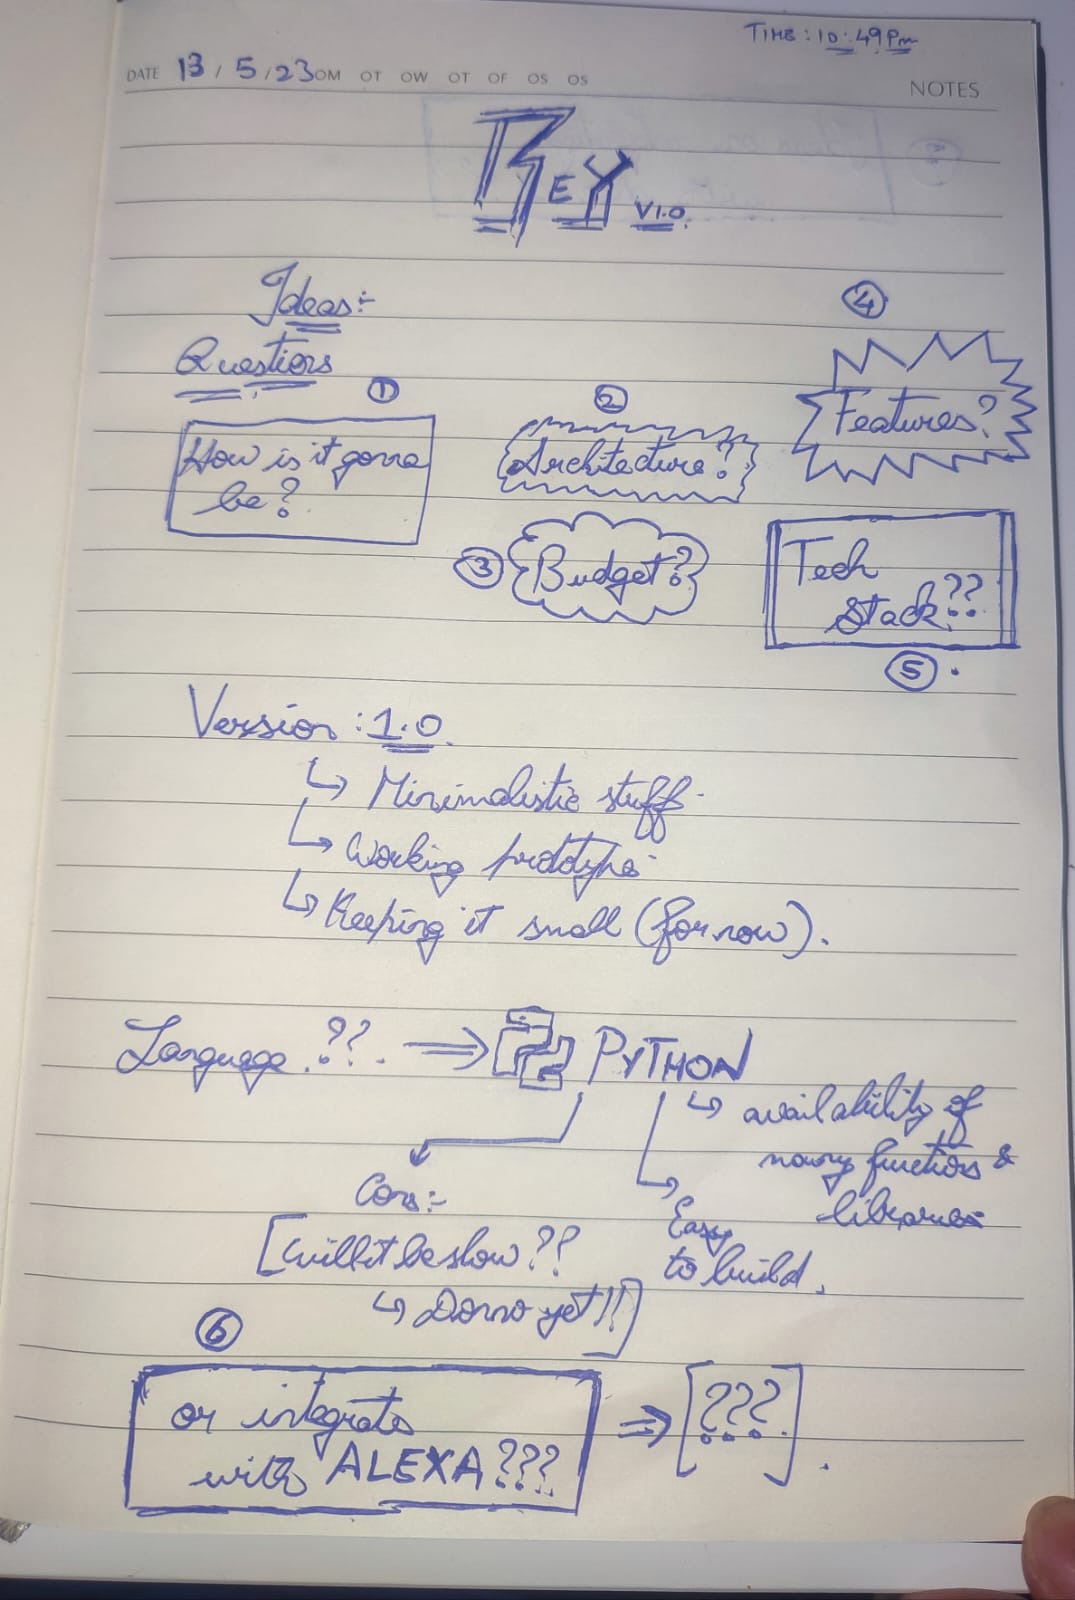 TIME: 10:49Pm
DATE 13 / 5 / 23 OM OT OW OT OF OS OS
NOTES
REY V1.0.
Ideas:-
Questions
①
How is it gonna
be?
②
Architecture?
③
Budget?
④
Features?
Tech
Stack??
⑤.
Version :1.0.
↳ Minimalistic stuff.
↳ Working prototype.
↳ Keeping it small (for now).
Language ??. ⇒ PYTHON
↳ availability of
many functions &
libraries
↳ Easy
to build.
Cons:-
[will it be slow??
↳ Donno yet!!]
⑥
or integrate
with ALEXA???
⇒ [???].